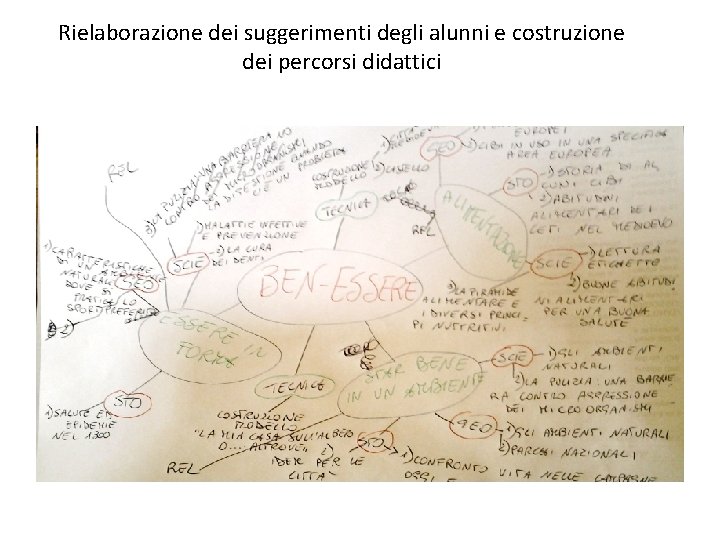 Rielaborazione dei suggerimenti degli alunni e costruzione
dei percorsi didattici
BEN-ESSERE
ALIMENTAZIONE
GEO
EUROPEI
2) CIBI IN USO IN UNA SPECIFICA
AREA EUROPEA
STO
1) STORIA DI AL
CUNI CIBI
2) ABITUDINI
ALIMENTARI DEI
CETI NEL MEDIOEVO
SCIE
1) LETTURA
ETICHETTE
2) BUONE ABITUDI
NI ALIMENTARI
PER UNA BUONA
SALUTE
3) LA PIRAMIDE
ALIMENTARE E
I DIVERSI PRINCI
PI NUTRITIVI
REL
TECNICA
COSTRUZIONE
MODELLO
2) CASTELLO
ESSERE IN
FORMA
REL
SCIE
1) MALATTIE INFETTIVE
E PREVENZIONE
2) LA CURA
DEI DENTI
3) LA PULIZIA: UNA BARRIERA
CONTRO AGGRESSIONE
DEI MICRORGANISMI
LA DIFESA
C'È UN PROBLEMA
GEO
1) CARATTERISTICHE
DI UN AMBIENTE
NATURALE
DOVE SI
PRATICA LO
SPORT PREFERITO
STO
1) SALUTE
EPIDEMIE
NEL 1300
STAR BENE
IN UN AMBIENTE
TECNICA
COSTRUZIONE
MODELLO
"LA MIA CASA SULL'ALBERO
O.... ALTROVE"
2)
IDEE PER LE
CITTÀ
REL
STO
1) CONFRONTO VITA NELLE CAMPAGNE
OGGI E
SCIE
1) GLI AMBIENTI
NATURALI
2) LA PULIZIA: UNA BARRIE
RA CONTRO AGGRESSIONE
DEI MICRORGANISMI
GEO
1) GLI AMBIENTI NATURALI
2) PARCHI NAZIONALI